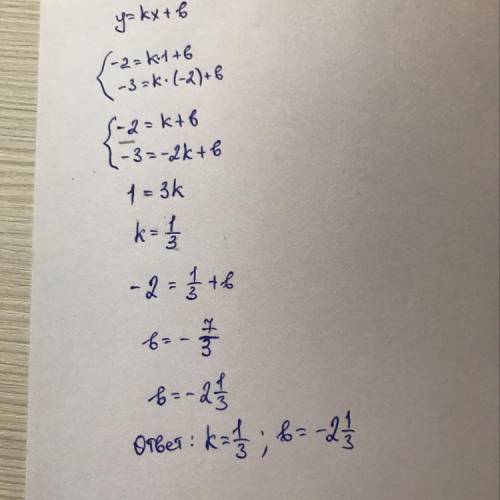 y = kx + b
{ -2 = k · 1 + b
-3 = k · (-2) + b
{ -2 = k + b
-3 = -2k + b
1 = 3k
k = 1/3
-2 = 1/3 + b
b = - 7/3
b = -2 1/3
Ответ: k = 1/3 ; b = -2 1/3